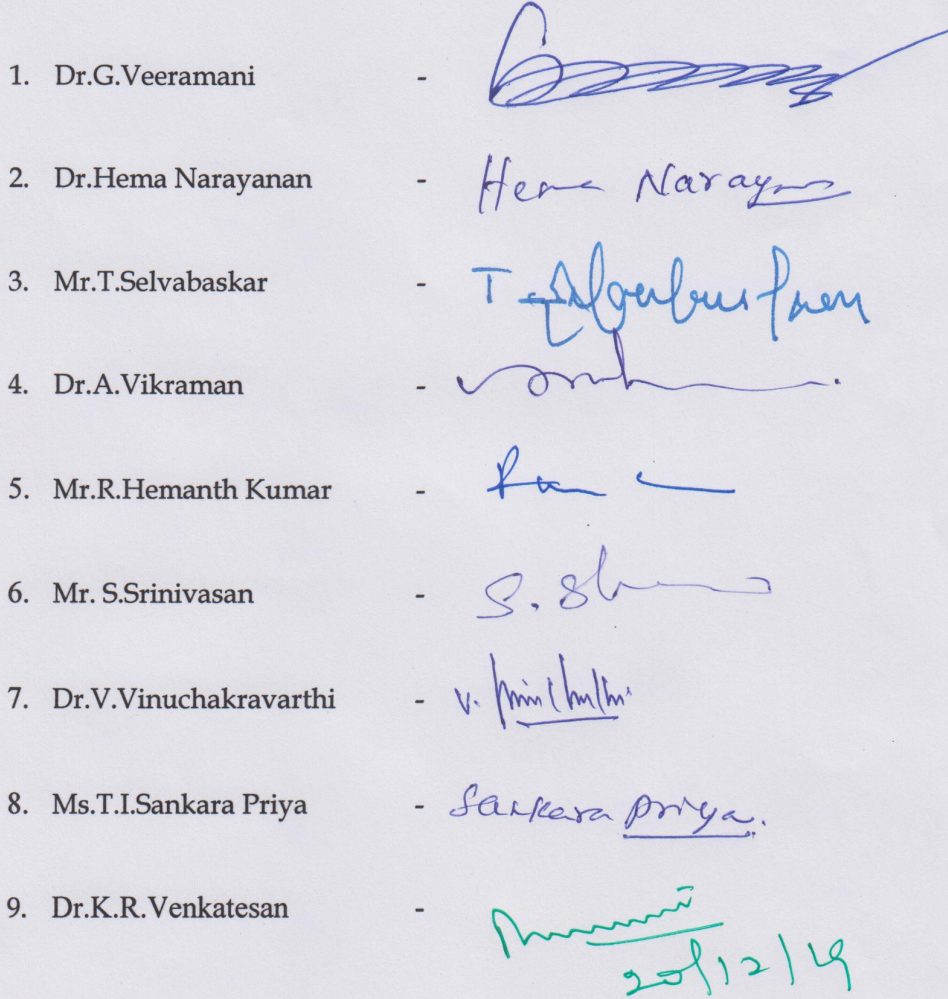 1. Dr.G.Veeramani -
2. Dr.Hema Narayanan - Hema Narayanan
3. Mr.T.Selvabaskar - T
4. Dr.A.Vikraman -
5. Mr.R.Hemanth Kumar -
6. Mr. S.Srinivasan - S.
7. Dr.V.Vinuchakravarthi - V.
8. Ms.T.I.Sankara Priya - Sankara Priya.
9. Dr.K.R.Venkatesan -
20/12/19